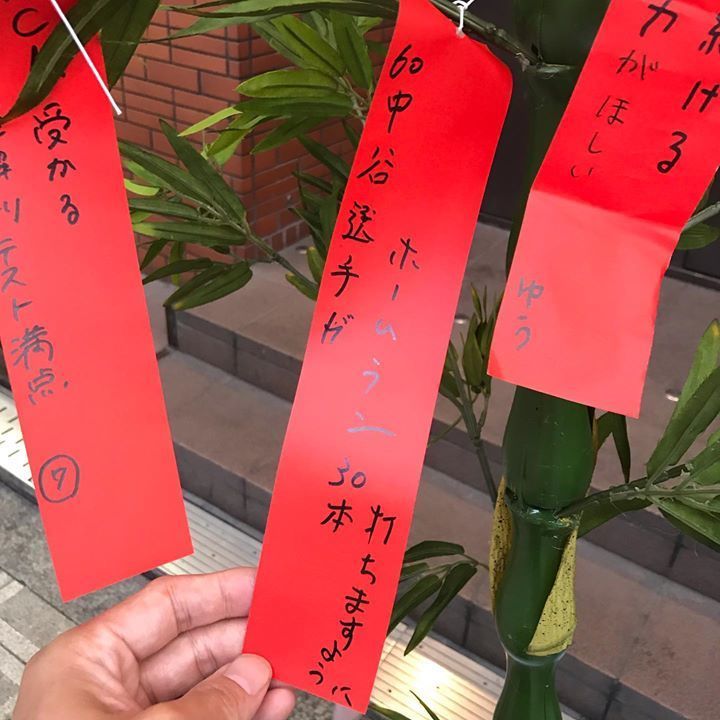 受かる
テスト満点
⑦
60中谷選手が
ホームラン
30本
打ちますように
続ける
力がほしい
ゆう